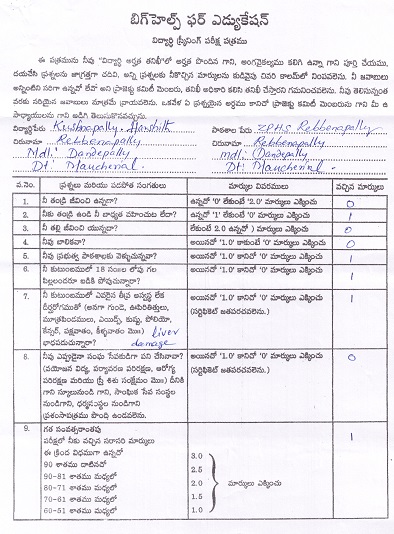 బిగ్‌హెల్ప్ ఫర్ ఎడ్యుకేషన్
విద్యార్థి స్క్రీనింగ్ పరీక్ష పత్రము
ఈ పత్రమును నీవు "విద్యార్థి అర్హత తనిఖీ"లో అర్హత పొందిన గాని, అంగవైకల్యము కలిగి ఉన్నా గాని పూర్తి చేయుము,
దయచేసి ప్రశ్నలను జాగ్రత్తగా చదివి, అన్ని ప్రశ్నలకు నీకొచ్చిన మార్కులను కుడివైపు చివరి కాలమ్‌లో నింపవలెను. నీ జవాబులు
అన్నింటికి సరిగా ఉన్నవో లేవో అని ప్రాజెక్టు కమిటీ మెంబరు, తనిఖీ అధికారి కలిసి తనిఖీ చేస్తారని గమనించవలెను. నీవు తెలిసినంత
వరకు సరియైన జవాబులు మాత్రమే వ్రాయవలెను. ఒకవేళ ఏ ప్రశ్నయైన అర్థము కానిచో ప్రాజెక్టు కమిటీ మెంబరును గాని మీ ఉ
పాధ్యాయులను గాని అడిగి తెలుసుకొనవచ్చును.
విద్యార్థిపేరు Krishnapally. Harshith పాఠశాల పేరు ZPHS Rebbenapally
చిరునామా Rebbenapally చిరునామా Rebbenapally
Mdl: Dandepally mdl: Dandepally
Dt: Mancherial. Dt: Mancherial.
ప.నెం. ప్రశ్నలు మరియు పడవోత సంగతులు మార్కుల వివరములు వచ్చిన మార్కులు
1. నీ తండ్రి జీవించి ఉన్నడా? ఉన్నచో '0' లేకుంటే '2.0' మార్కులు ఎక్కించు 0
2. నీకు తండ్రి ఉండి నీ బాధ్యత వహించుట లేదా? ఉన్నచో '1' లేకుంటే '0' మార్కులు ఎక్కించు 1
3. నీ తల్లి జీవించి యున్నదా? లేకుంటే 2.0 ఉన్నచో ) మార్కులు ఎక్కించు 0
4. నీవు బాలికవా? అయినచో '1.0' కాకుంటే '0' మార్కులు ఎక్కించు 0
5. నీవు ప్రభుత్వ పాఠశాలకు వెళ్ళుచున్నవా? అయినచో '1.0' కానిచో '0' మార్కులు ఎక్కించు 1
6. నీ కుటుంబములో 18 సంఐల లోపు గల
పిల్లలందరూ బడికి పోవుచున్నారా? అయినచో '1.0' కానిచో '0' మార్కులు ఎక్కించు 1
7. నీ కుటుంబములో ఎవరైన తీవ్ర అస్వస్థ లేక
దీర్ఘరోగముతో (అనగా గుండె, ఊపిరితిత్తులు,
మూత్రపిండములు, ఎయిడ్స్, కుష్ఠు, పోలియో,
కేన్సర్, పక్షవాతం, కీళ్ళవాతం మొ॥) liver
బాధపడుచున్నారా? damage
అయినచో '1.0' కానిచో '0' మార్కులు ఎక్కించు 1
(సర్టిఫికెట్ జతపరచవలెను.)
8. నీవు ఎప్పుడైనా సంఘ సేవకుడిగా పని చేసినావా?
(వయోజన విద్య, పర్యావరణ పరిరక్షణ, ఆరోగ్య
పరిరక్షణ మరియు స్త్రీ శిశు సంక్షేమం మొ॥) దీనికి
గాని స్కూలునుండి గాని, సాంఘిక సేవ సంస్థల
నుండిగాని, ధర్మసంస్థల నుండిగాని
ప్రశంసాపత్రము పొంది ఉండవలెను.
అయినచో '1.0' కానిచో '0' మార్కులు ఎక్కించు 0
(సర్టిఫికెట్ జతపరచవలెను.)
9. గత సంవత్సరాంతపు
పరీక్షలో నీకు వచ్చిన సరాసరి మార్కులు 1
ఈ క్రింది విధముగా ఉన్నచో
90 శాతము దాటినచో 3.0
90-81 శాతము మధ్యలో 2.5
80-71 శాతము మధ్యలో 2.0 మార్కులు ఎక్కించు
70-61 శాతము మధ్యలో 1.5
60-51 శాతము మధ్యలో 1.0